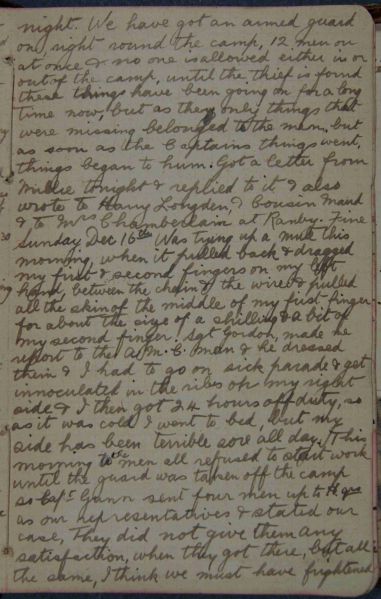 night. We have got an armed guard
on, right round the camp, 12 men on
at once & no one is allowed either in or
out of the camp, until the thief is found
these things have been going on for a long
time now, but as they only things that
were missing belonged to the men, but
as soon as the Captains things went,
things began to hum. Got a letter from
Millie tonight & replied to it & also
wrote to Harry Longden, & Cousin Maud
& to Mrs Chamberlain at Ranby. Fine
Sunday Dec 16th Was tying up a mule this
morning, when it pulled back & dragged
my first & second fingers on my left
hand, between the chain & the wire & pulled
all the skin of the middle of my first finger
for about the size of a shilling & a bit of
my second finger. Sgt Gordon, made me
report to the A.M.C. man & he dressed
them & I had to go on sick parade & get
innoculated in the ribs on my right
side & I then got 24 hours off duty, so
as it was cold I went to bed, but my
side has been terrible sore all day. This
morning the men all refused to start work
until the guard was taken off the camp
so Capt Gunn sent four men up to H qrs
as our representatives & stated our
case, They did not give them any
satisfaction, when they got there, but all
the same, I think we must have frightened